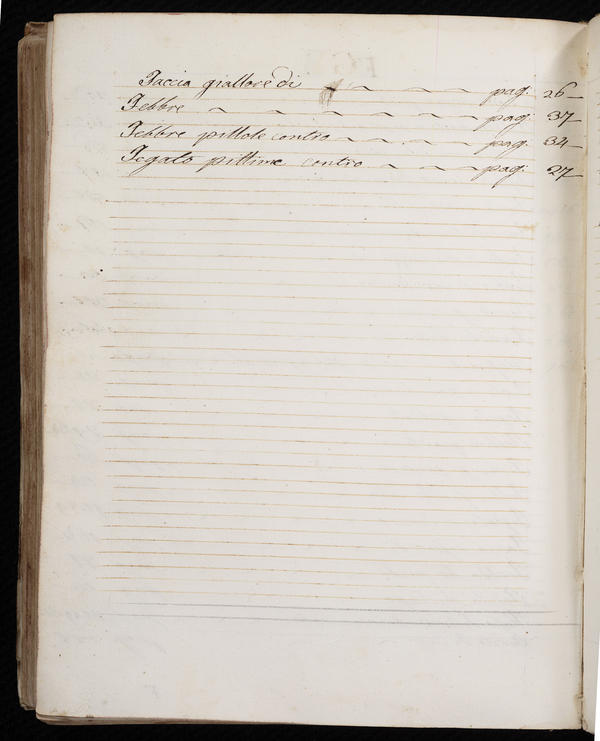 Faccia giallore di ~ ~ ~ ~ pag. 26
Febbre ~ ~ ~ ~ ~ ~ ~ pag. 37
Febbre pillole contro ~ ~ ~ ~ pag. 34
Fegato pittime contro ~ ~ ~ pag. 27